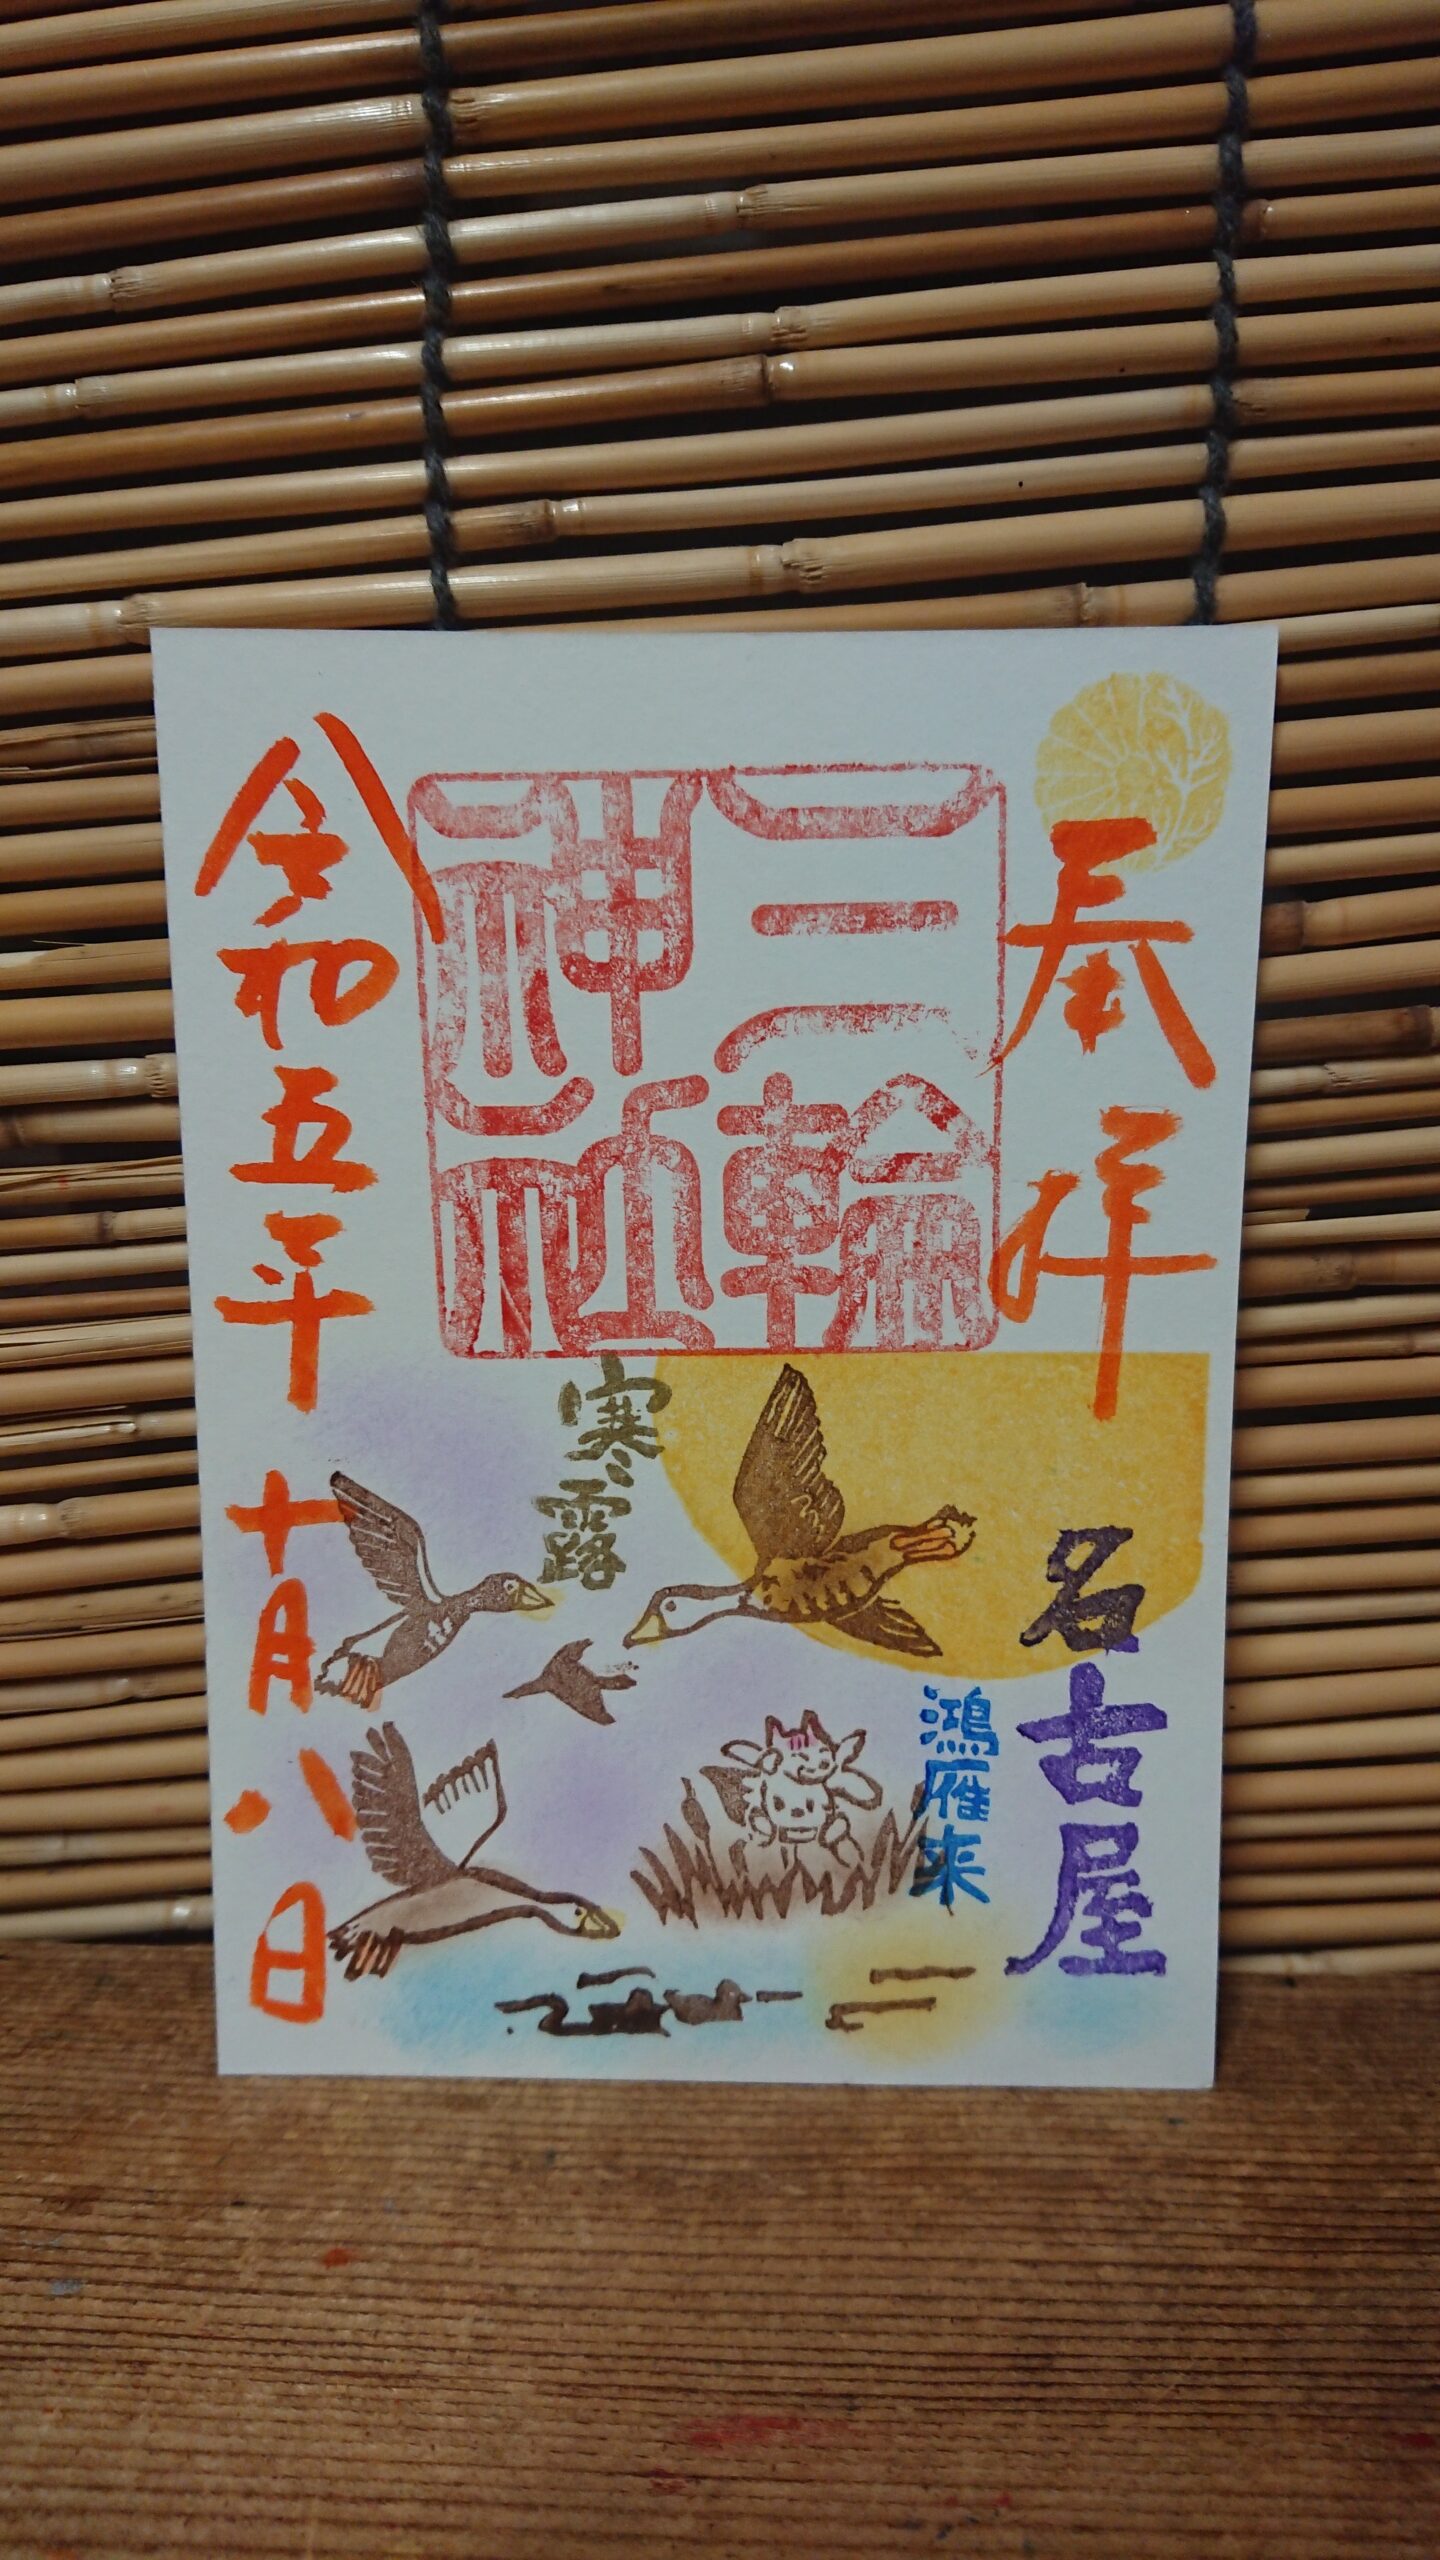 奉拝
名古屋
三輪
神社
鴻雁来
寒露
令和五年十月八日